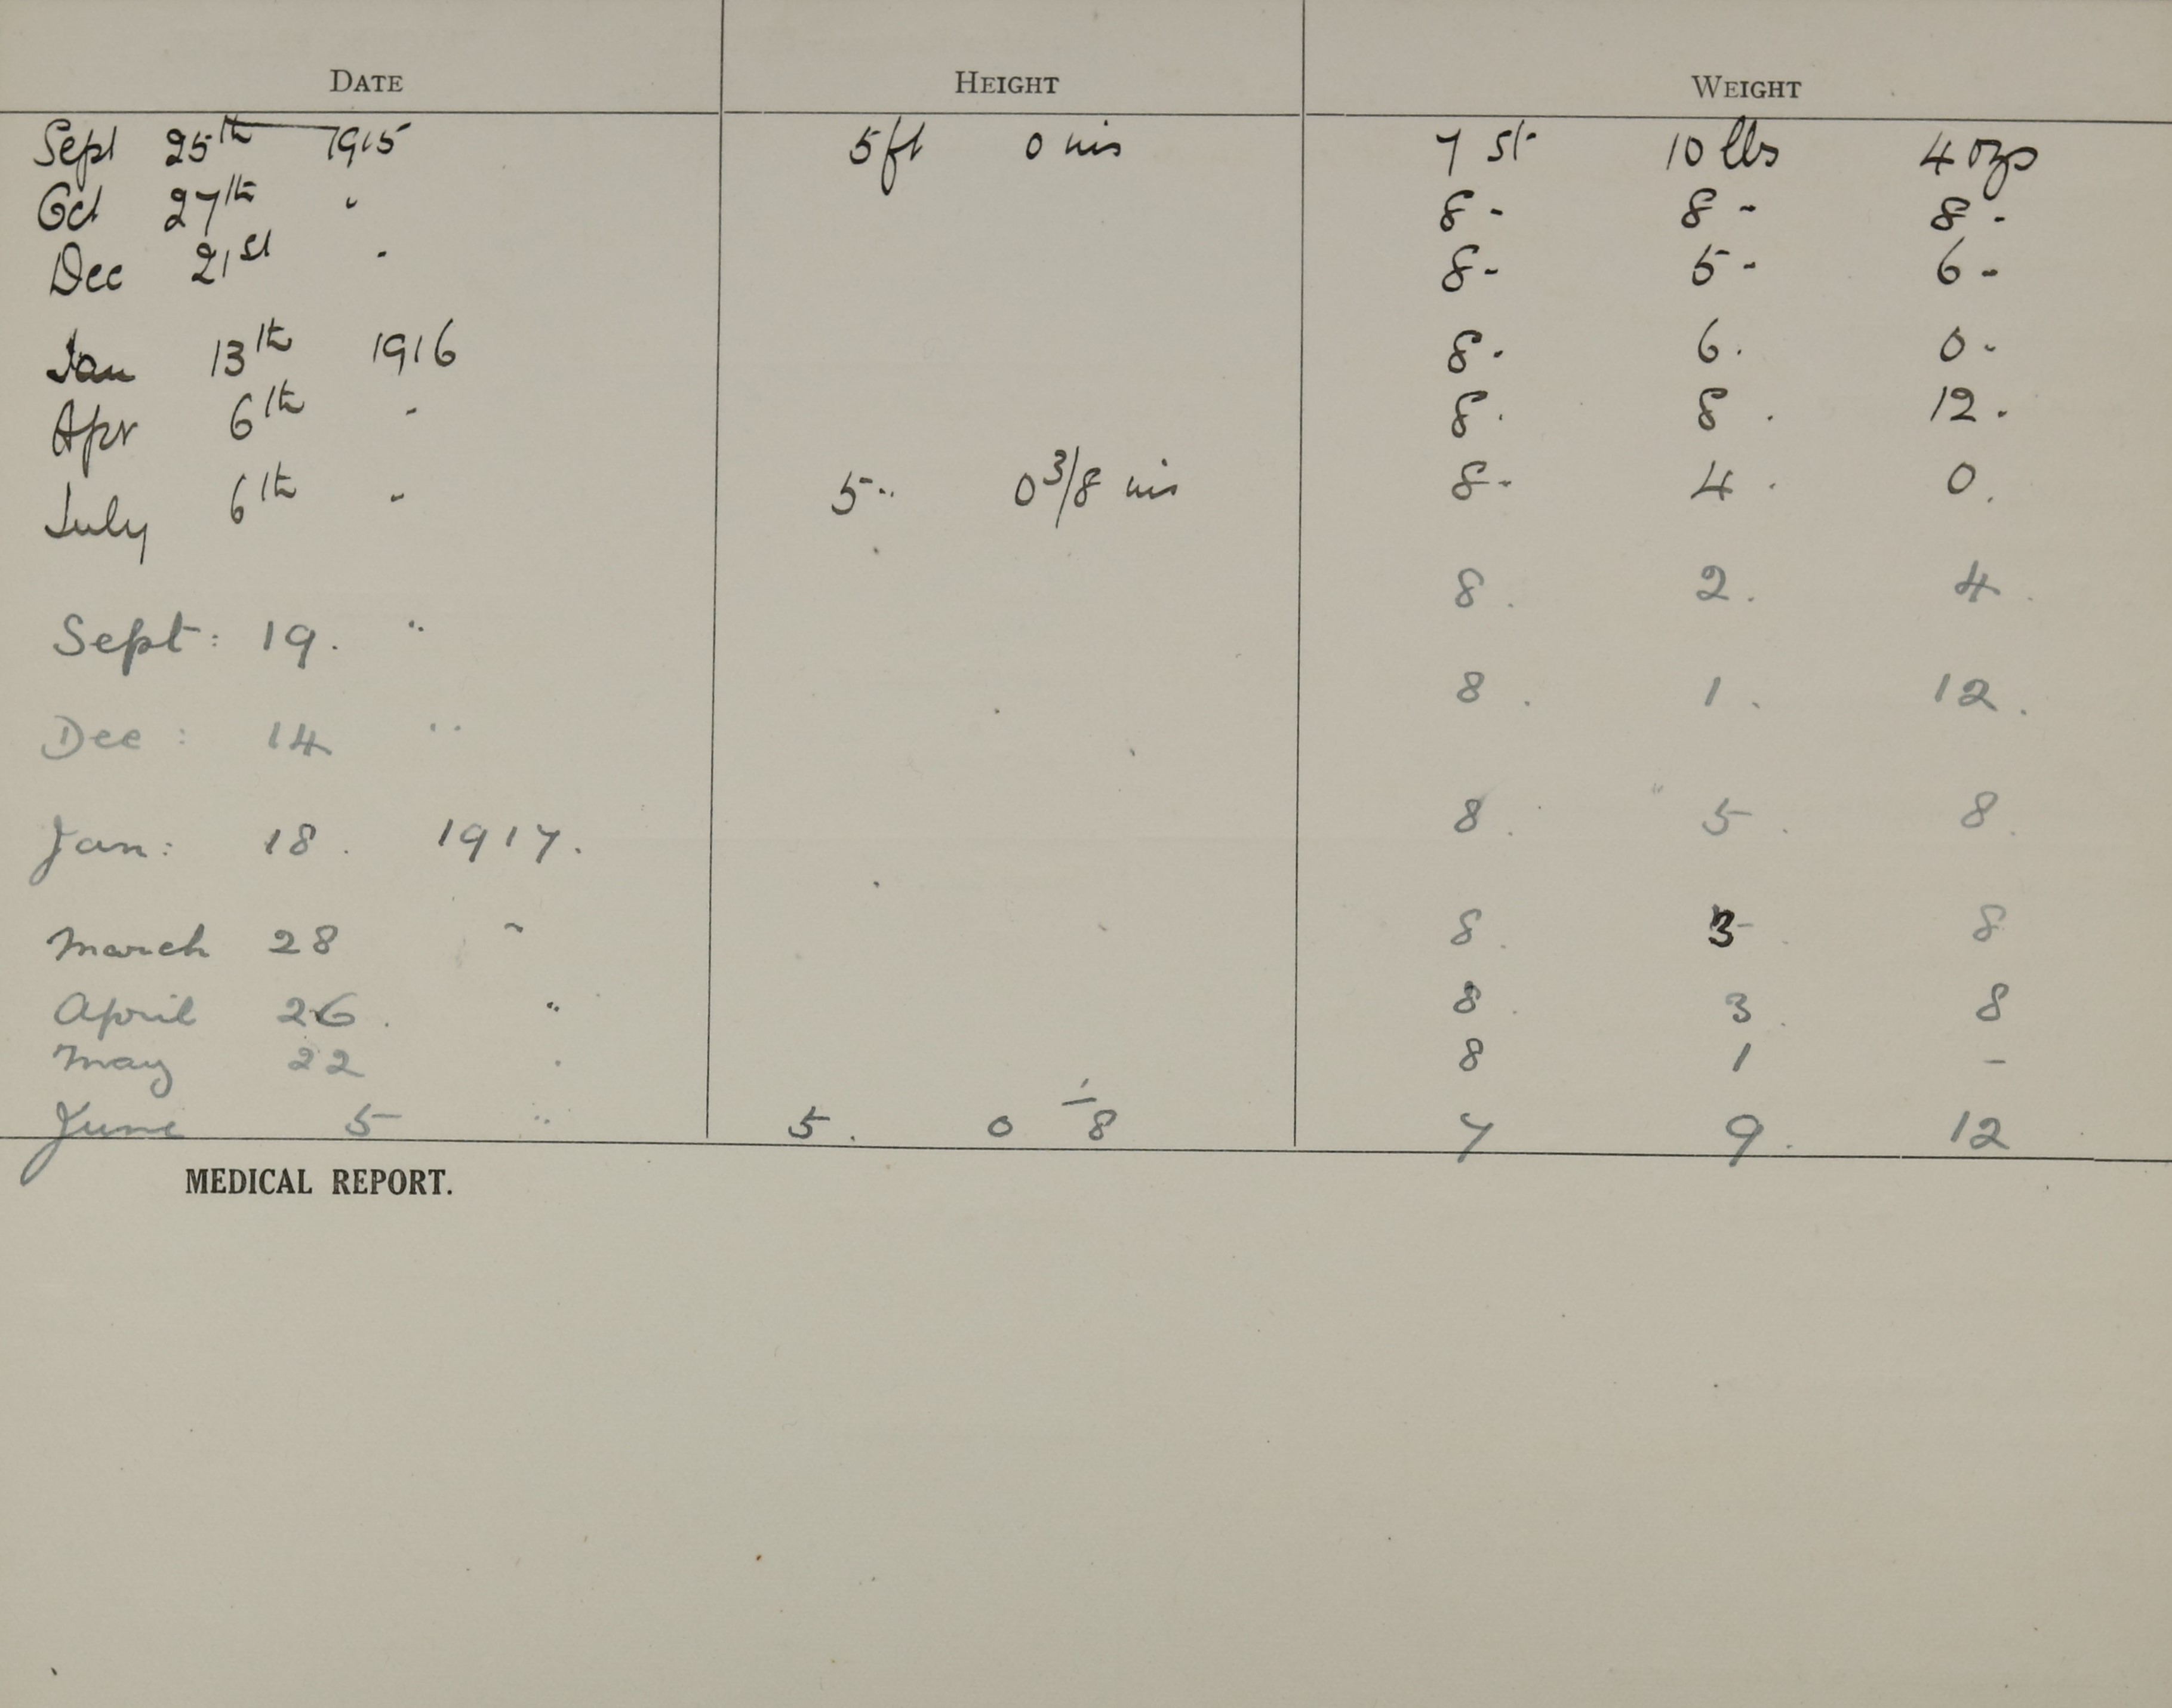 DATE HEIGHT WEIGHT
Sept 25th 1915 5 ft 0 ins 7 st 10 lbs 4 ozs
Oct 27th " 8 - 8 - 8 -
Dec 21st " 8 - 5 - 6 -
Jan 13th 1916 8 . 6 . 0 -
Apr 6th " 8 . 8 . 12 .
July 6th " 5 " 0 3/8 ins 8 - 4 . 0 .
Sept: 19. " 8 . 2 . 4 .
Dec: 14 " 8 . 1 . 12 .
Jan: 18. 1917. 8 . 5 . 8 .
March 28 " 8 . 3 . 8
April 26. " 8 . 3 . 8
May 22 " 8 1 -
June 5 " 5. 0 1/8 7 9. 12
MEDICAL REPORT.